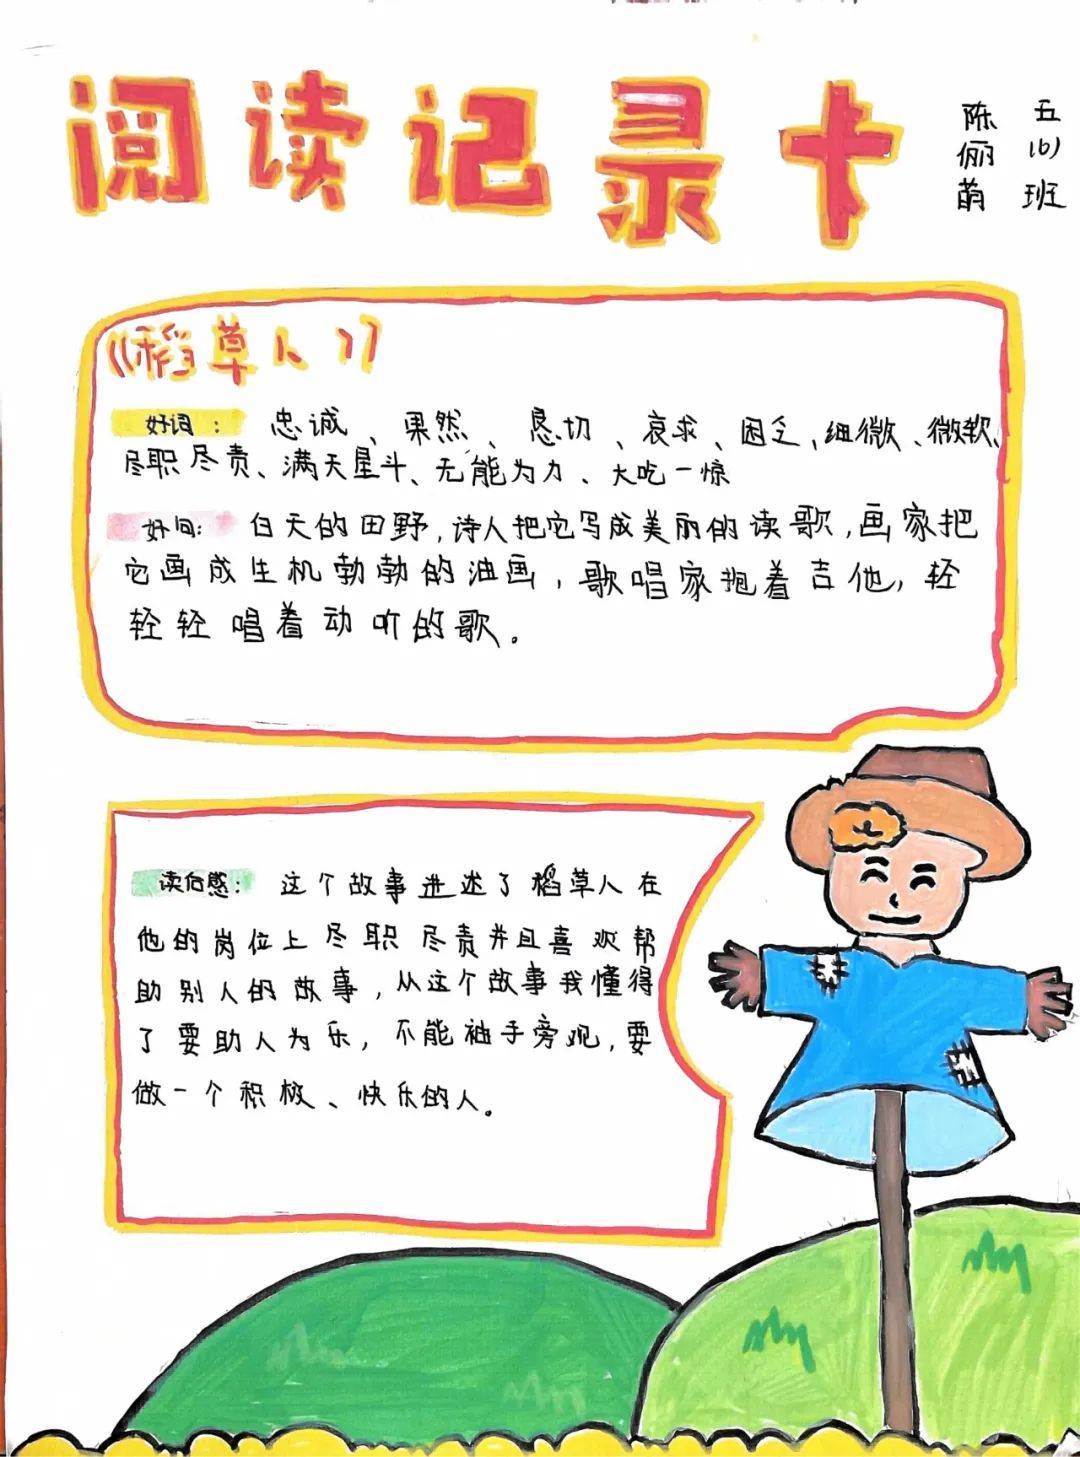 阅读记录卡
五(6)班
陈俪萌
《稻草人》
好词： 忠诚、果然、恳切、哀求、困乏、细微、微软、
尽职尽责、满天星斗、无能为力、大吃一惊
好句： 白天的田野,诗人把它写成美丽的读歌,画家把
它画成生机勃勃的油画，歌唱家抱着吉他，轻
轻轻唱着动听的歌。
读后感： 这个故事进述了稻草人在
他的岗位上尽职尽责并且喜欢帮
助别人的故事，从这个故事我懂得
了要助人为乐，不能袖手旁观，要
做一个积极、快乐的人。